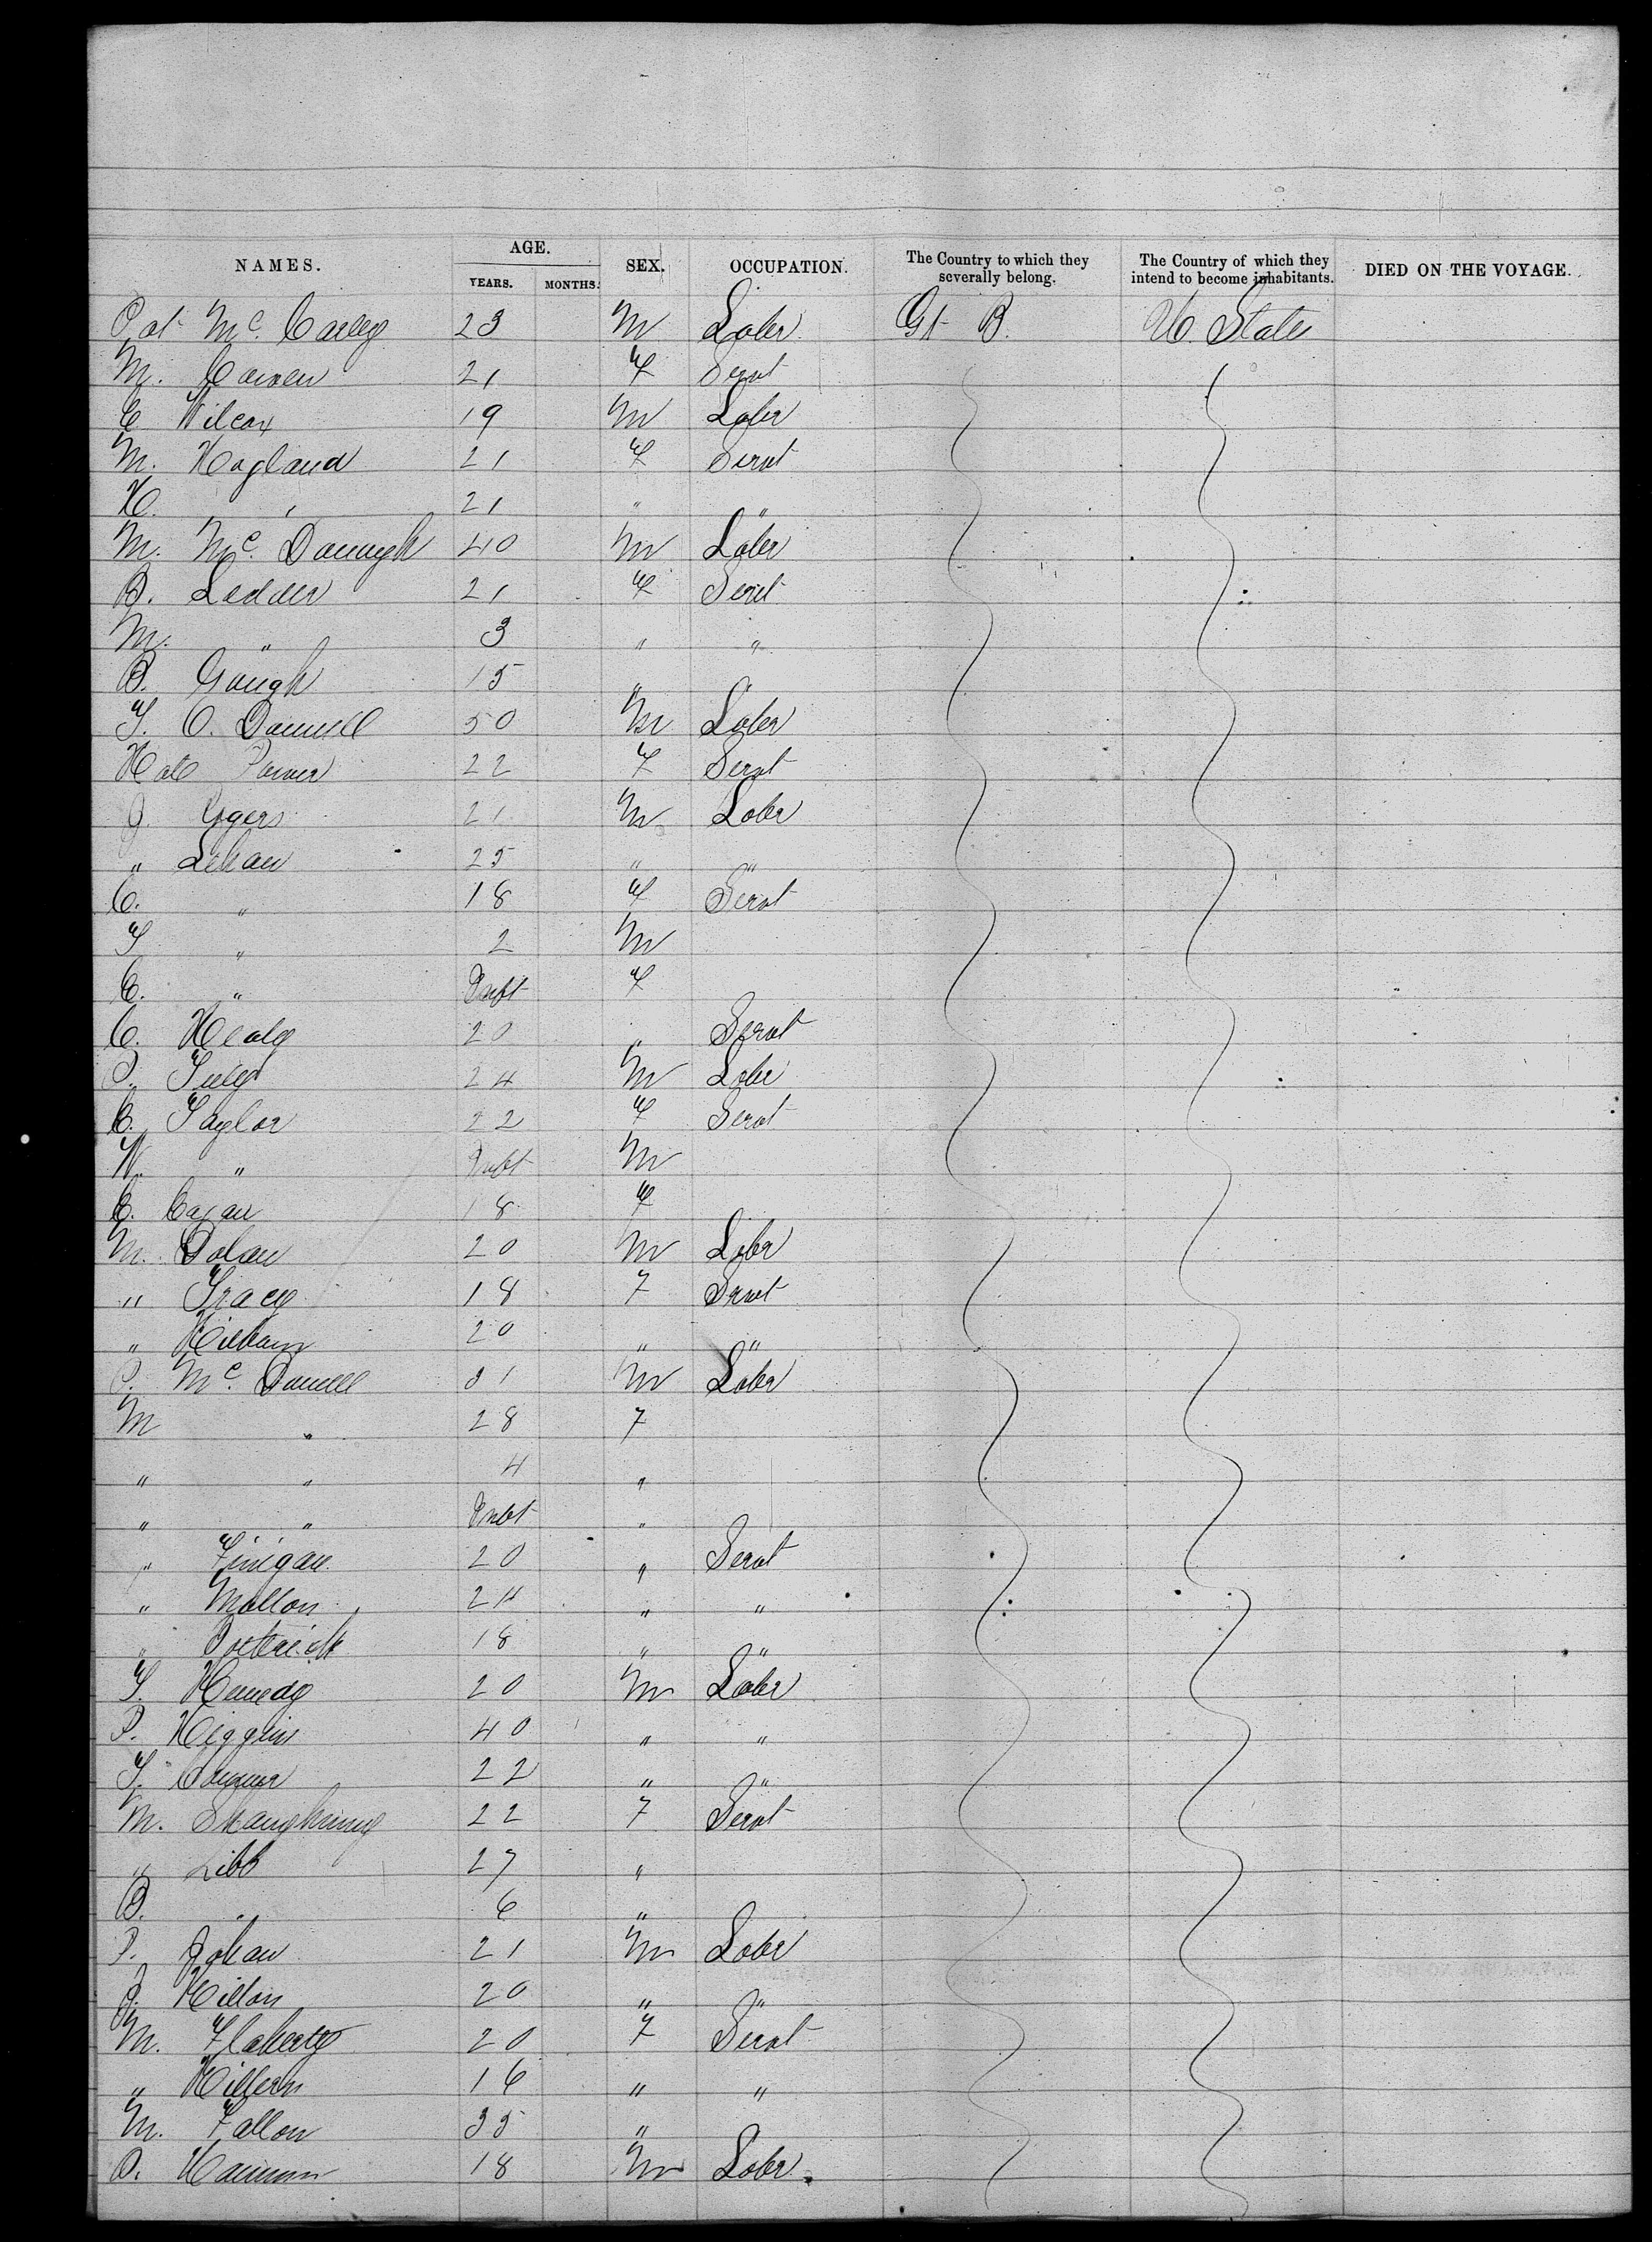 NAMES. AGE. YEARS. MONTHS. SEX. OCCUPATION. The Country to which they severally belong. The Country of which they intend to become inhabitants. DIED ON THE VOYAGE.
Pat Mc. Carey 23 M Laber Gt B. U. States
M. 21 F Servt
C Wilcox 19 M Laber
M. Hogland 21 F Servt
H. " 21 " "
M. Mc. Donnugh 40 M Laber
B. Ledder 21 F Servt
M. " 3 " "
B. Gough 15 " "
T. O. Donnell 50 M Laber
Kate Power 22 F Servt
J. Eyers 21 M Laber
" Lehan 25 " "
C. " 18 F Servt
T " 2 M
C. " Inft F
C. Healy 20 " Servt
P. Tuley 24 M Laber
C. Taylor 22 F Servt
W. " Inft M
C. 18 F
M. Dolan 20 M Laber
" Tracy 18 F Servt
" 20 " "
P. Mc. Donnell 31 M Laber
M " 28 F
" " 4 "
" " Inft "
" Finigan 20 " Servt
" Mallon 24 " "
" 18 " "
T. Kennedy 20 M Laber
P. Higgins 40 " "
T. 22 " "
M. Shaughnssy 22 F Servt
" Libb 27 "
B. " 6 "
P. 21 M Laber
J. Killon 20 " "
M. Flaherty 20 F Servt
" Killern 16 " "
M. Fallon 35 "
P. Hannon 18 M Laber